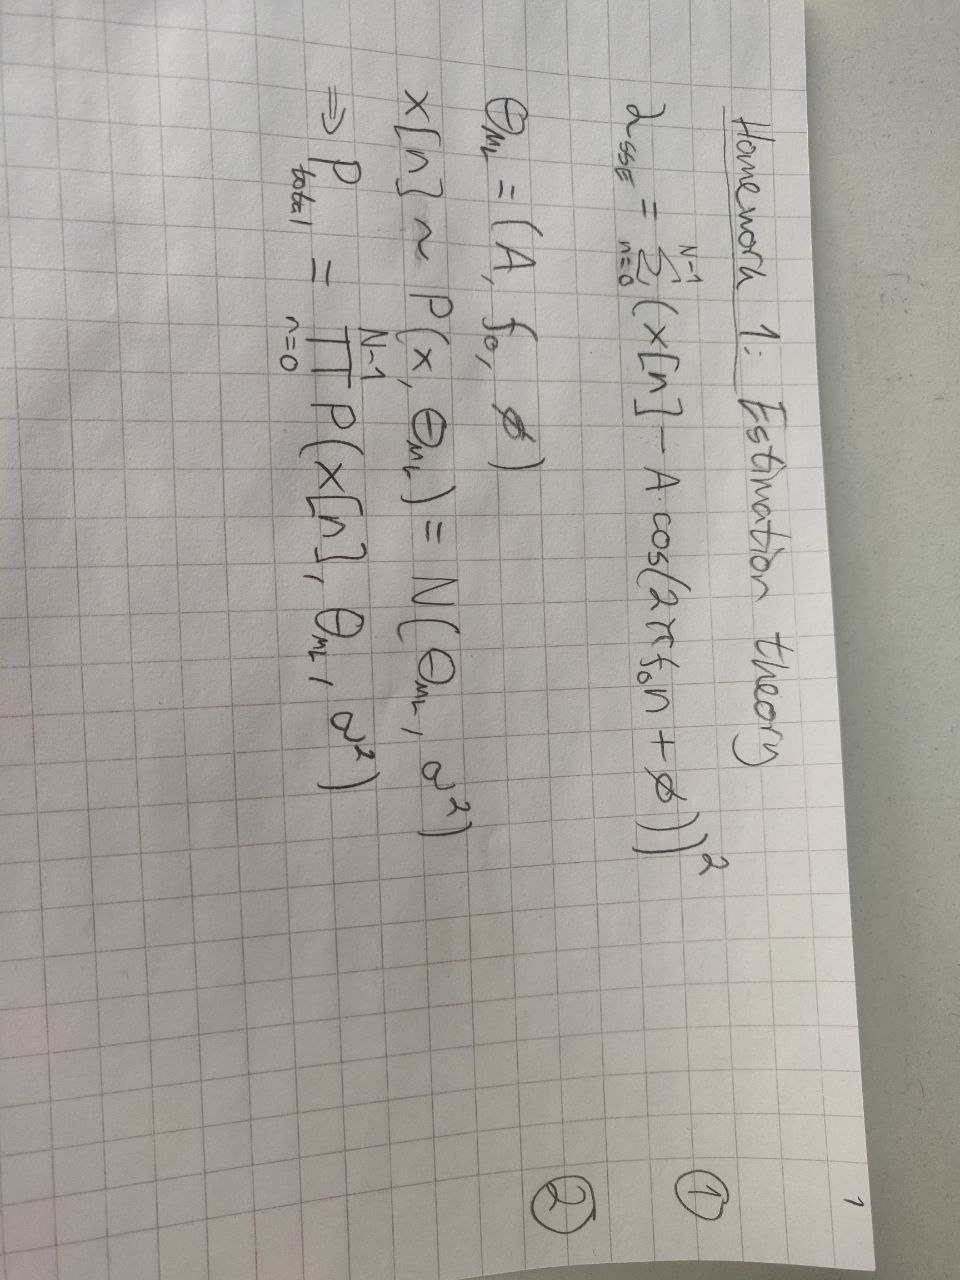 1
Homework 1: Estimation theory
λ_SSE = Σ_{n=0}^{N-1} (x[n] - A·cos(2πf₀n + ϕ))² ①
②
θ_ML = (A, f₀, ϕ)
x[n] ~ P(x, θ_ML) = N(θ_ML, σ²)
⇒ P_total = Π_{n=0}^{N-1} P(x[n], θ_ML, σ²)